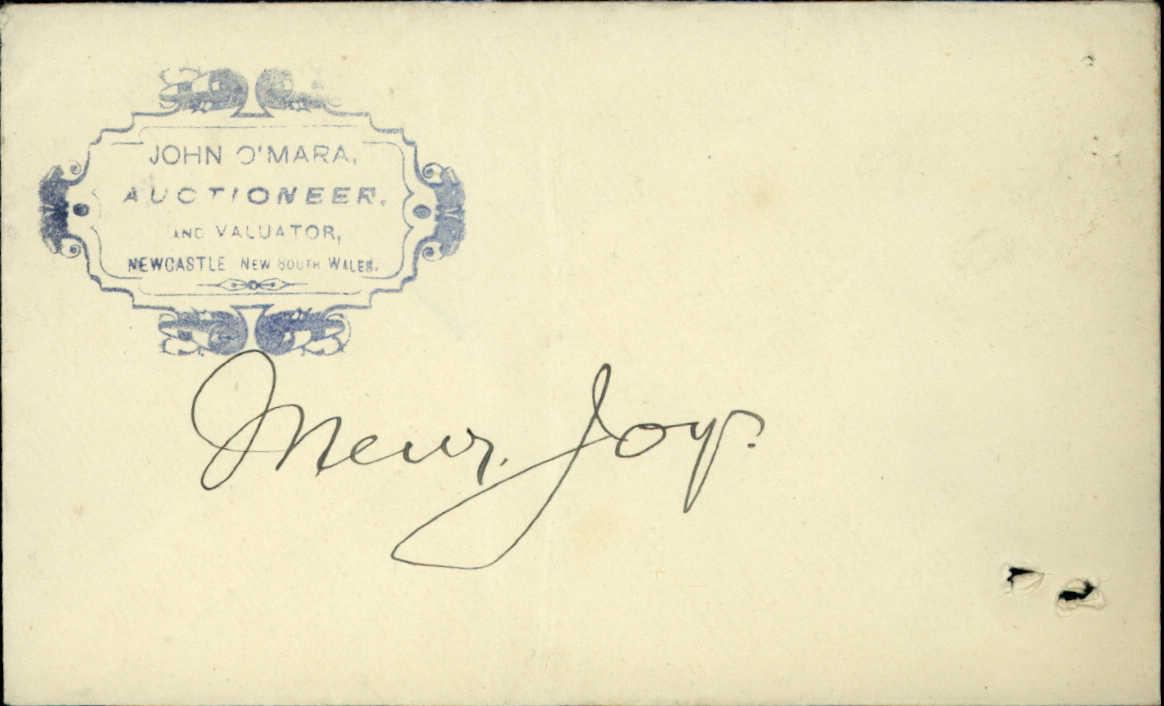 JOHN O'MARA,
AUCTIONEER.
AND VALUATOR,
NEWCASTLE NEW SOUTH WALES.
Joy.